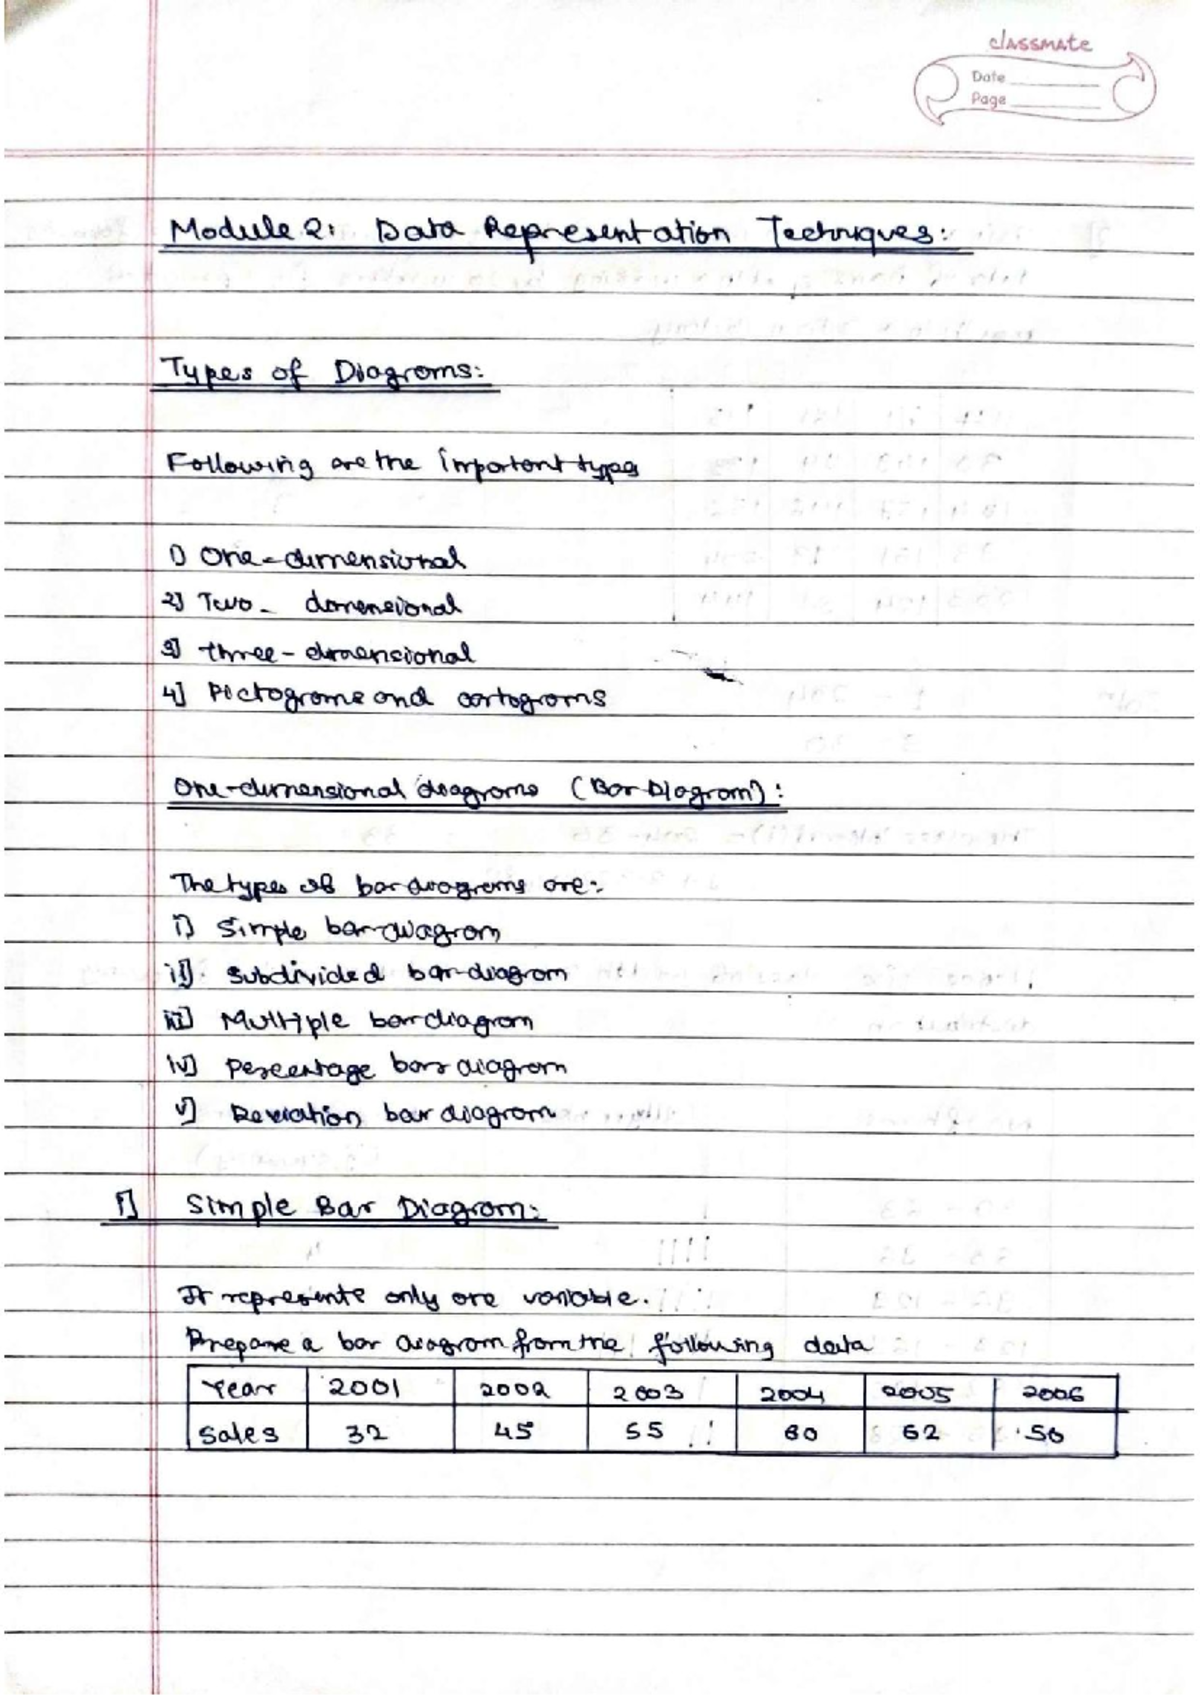 classmate
Date
Page
Module 2: Data Representation Techniques:
Types of Diagrams:
Following are the important types
1) One-dimensional
2] Two- dimensional
3] three-dimensional
4] Pictograms and cartograms
One-dimensional diagrams (Bar Diagram):
The types of bar diagrams are:-
i] Simple bar-diagram
ii] Subdivided bar-diagram
iii] Multiple bar diagram
iv] Percentage bar diagram
v] Deviation bar diagram
1] Simple Bar Diagram:
It represents only one variable.
Prepare a bar diagram from the following data
Year 2001 2002 2003 2004 2005 2006
Sales 32 45 55 60 62 50